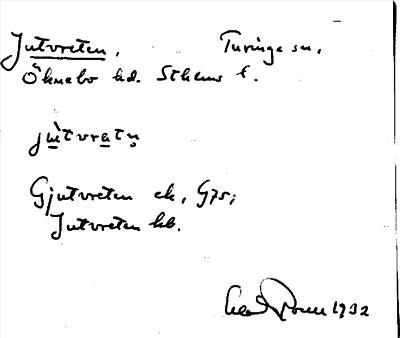 Jutvreten. Turinge sn.
Öknebo hd. Sthlms l.
jùtvratn̥
Gjutvreten ek, G75;
Jutvreten hb.
1932